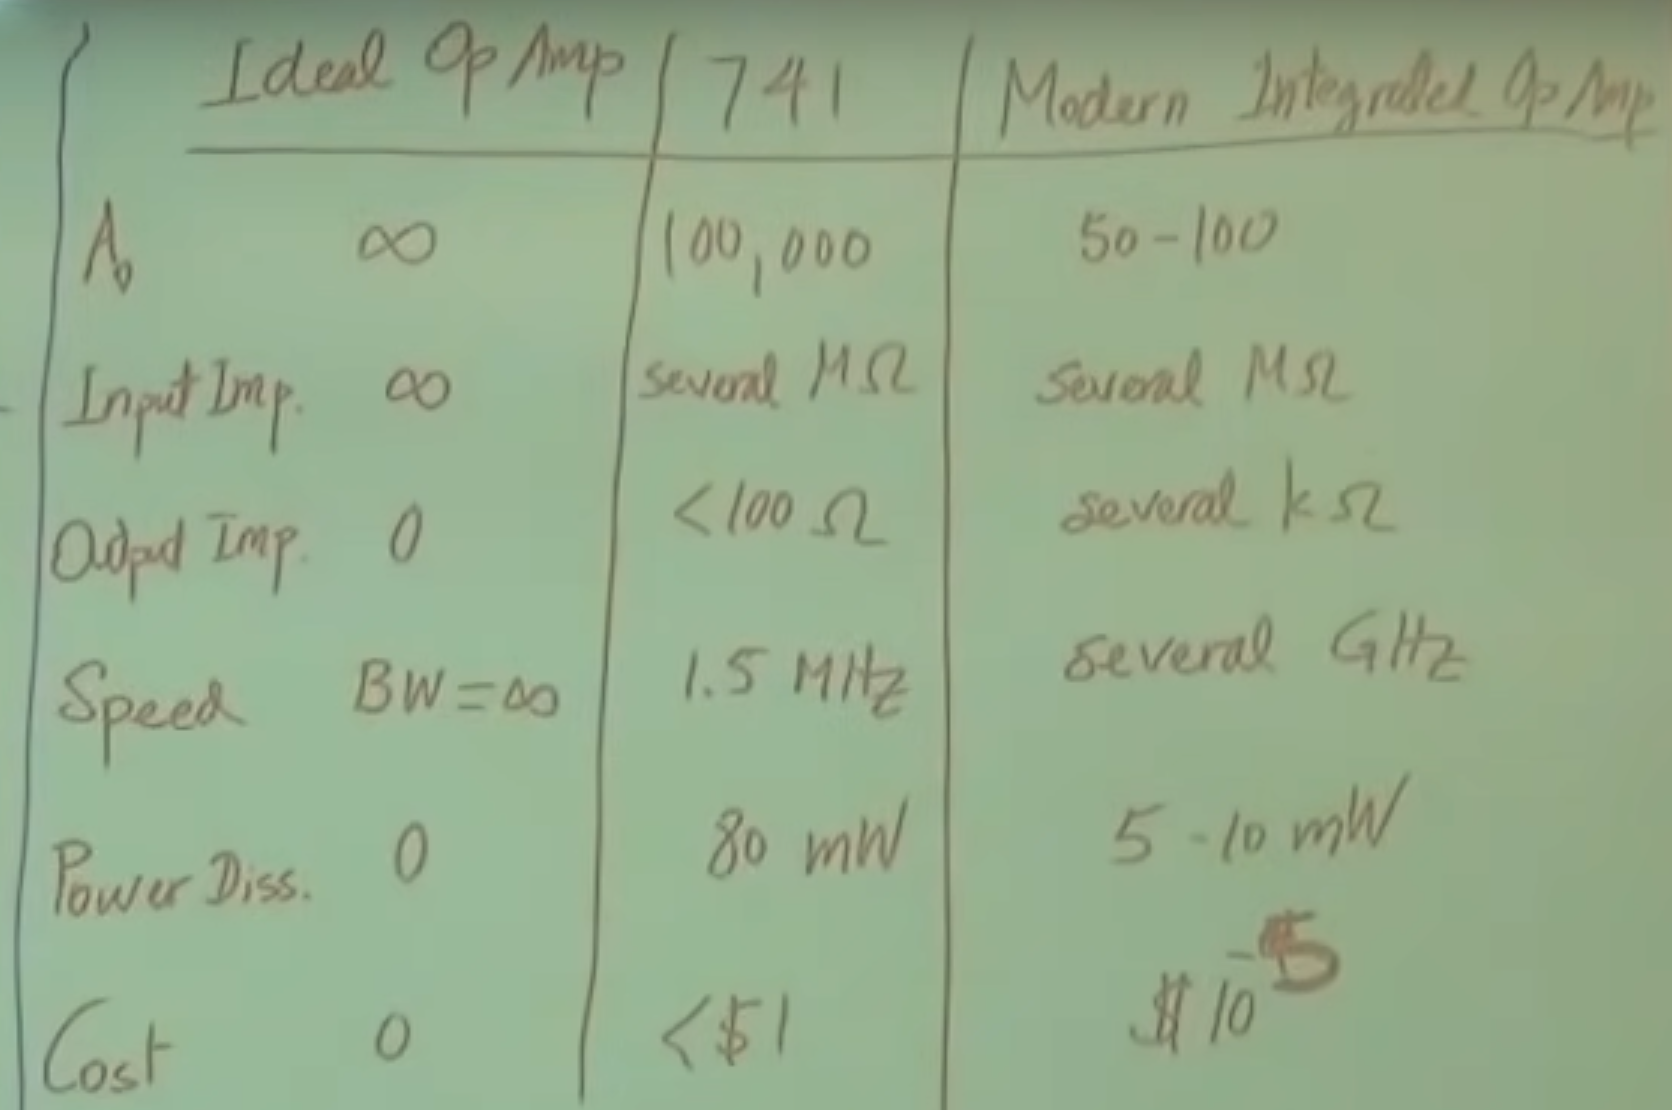 Ideal Op Amp 741 Modern Integrated Op Amp
A₀ ∞ 100,000 50-100
Input Imp. ∞ several MΩ several MΩ
Output Imp. 0 <100 Ω several kΩ
Speed BW=∞ 1.5 MHz several GHz
Power Diss. 0 80 mW 5-10 mW
Cost 0 <$1 $10⁻⁵